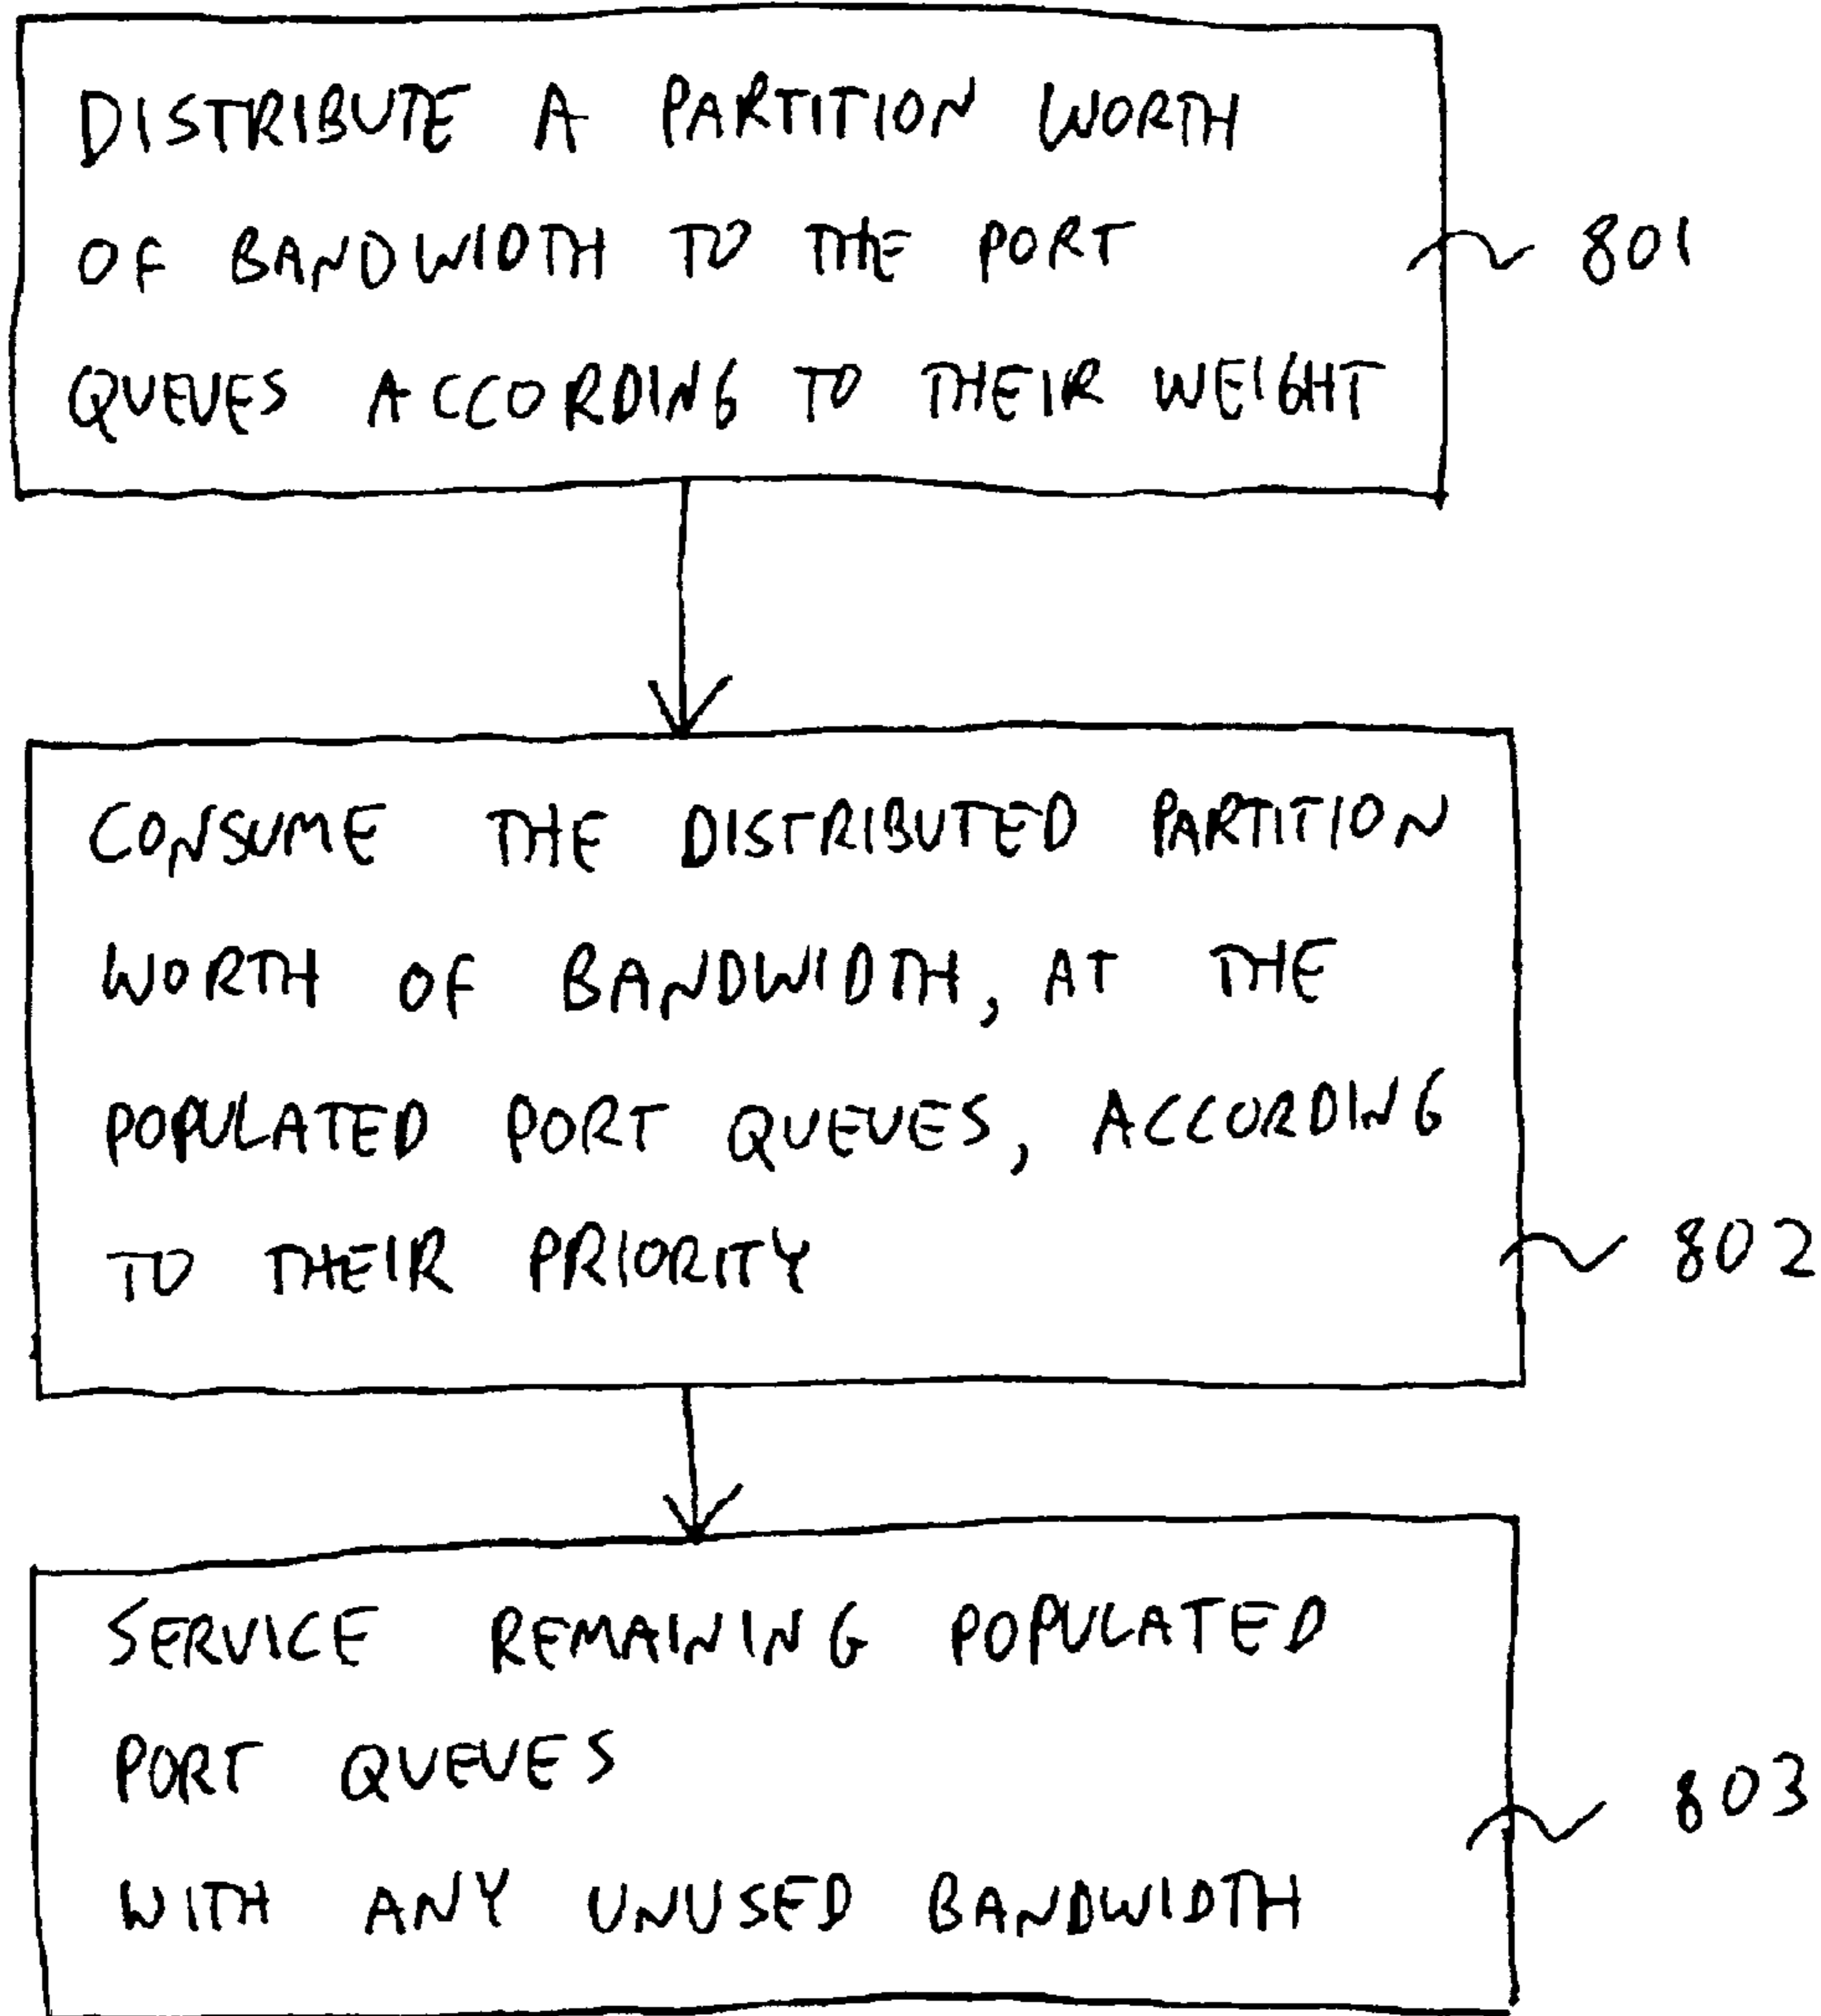 DISTRIBUTE A PARTITION WORTH
OF BANDWIDTH TO THE PORT
QUEUES ACCORDING TO THEIR WEIGHT
801
CONSUME THE DISTRIBUTED PARTITION
WORTH OF BANDWIDTH, AT THE
POPULATED PORT QUEUES, ACCORDING
TO THEIR PRIORITY
802
SERVICE REMAINING POPULATED
PORT QUEUES
803
WITH ANY UNUSED BANDWIDTH